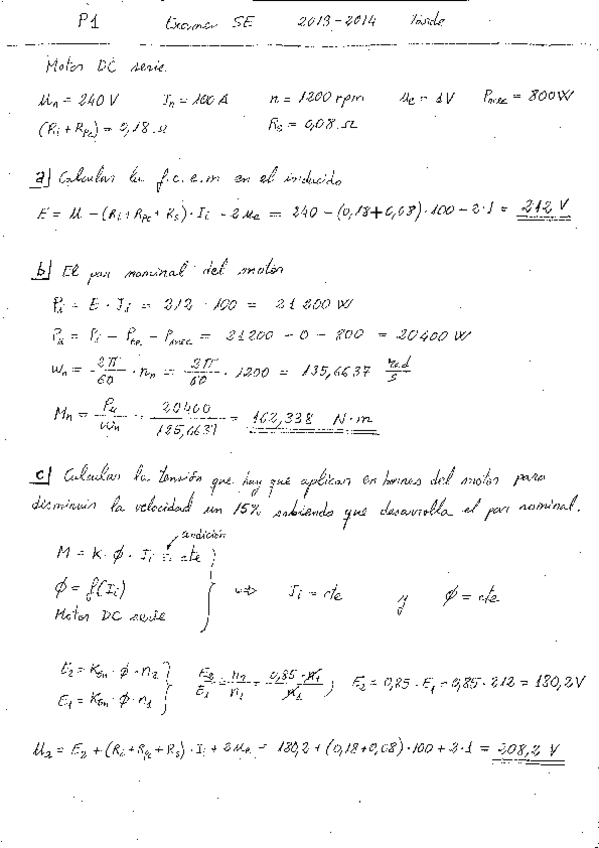 P1 Examen SE 2013-2014 Tarde
Motor DC serie.
Un = 240 V In = 100 A n = 1200 rpm Ue = 1V Pmec = 800W
(Ri + Rpc) = 0,18 Ω Rs = 0,08 Ω
a) Calcular la f.c.e.m en el inducido
E = U - (Ri + Rpc + Rs) · Ii - 2Ue = 240 - (0,18+0,08) · 100 - 2·1 = 212 V
b) El par nominal del motor
Pi = E · Ii = 212 · 100 = 21200 W
Pu = Pi - - Pmec = 21200 - 0 - 800 = 20400 W
Wn = 2π/60 · nn = 2π/60 · 1200 = 135,6637 rad/s
Mn = Pu/Wn = 20400/125,6637 = 162,338 N·m
c) Calcular la tensión que hay que aplicar en bornes del motor para
disminuir la velocidad un 15% sabiendo que desarrolla el par nominal.
condición
M = K · ϕ · Ii = cte
ϕ = f(Ii) => Ii = cte y ϕ = cte
Motor DC serie
E2 = KEn · ϕ · n2 E2/E1 = n2/n1 = 0,85 · n1/n1 ; E2 = 0,85 · E1 = 0,85 · 212 = 180,2V
E1 = KEn · ϕ · n1
U2 = E2 + (Ri + Rpc + Rs) · Ii + 2Ue = 180,2 + (0,18+0,08) · 100 + 2·1 = 208,2 V